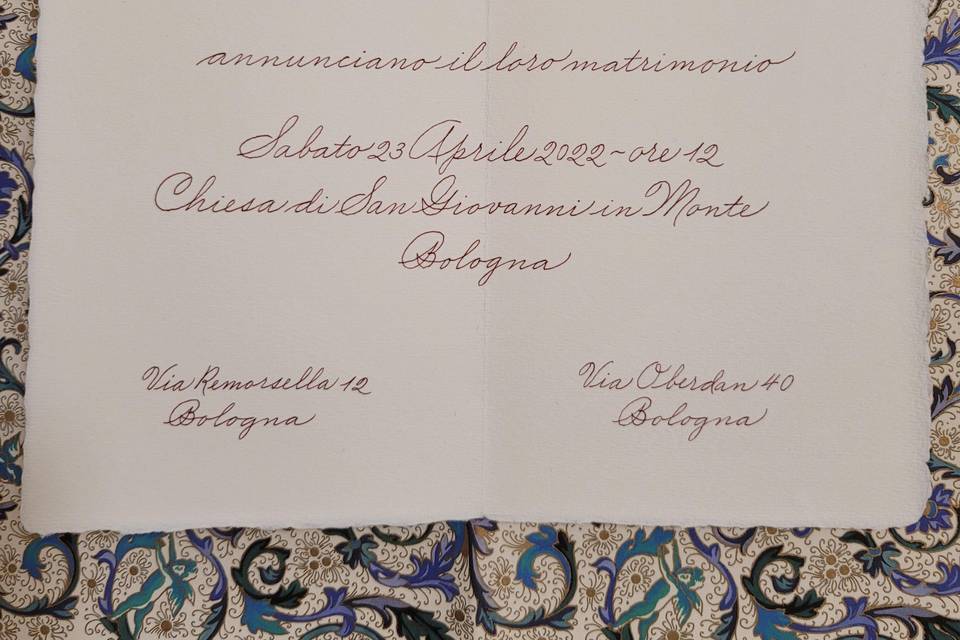 annunciano il loro matrimonio
Sabato 23 Aprile 2022 ~ ore 12
Chiesa di San Giovanni in Monte
Bologna
Via Remorsella 12
Bologna
Via Oberdan 40
Bologna